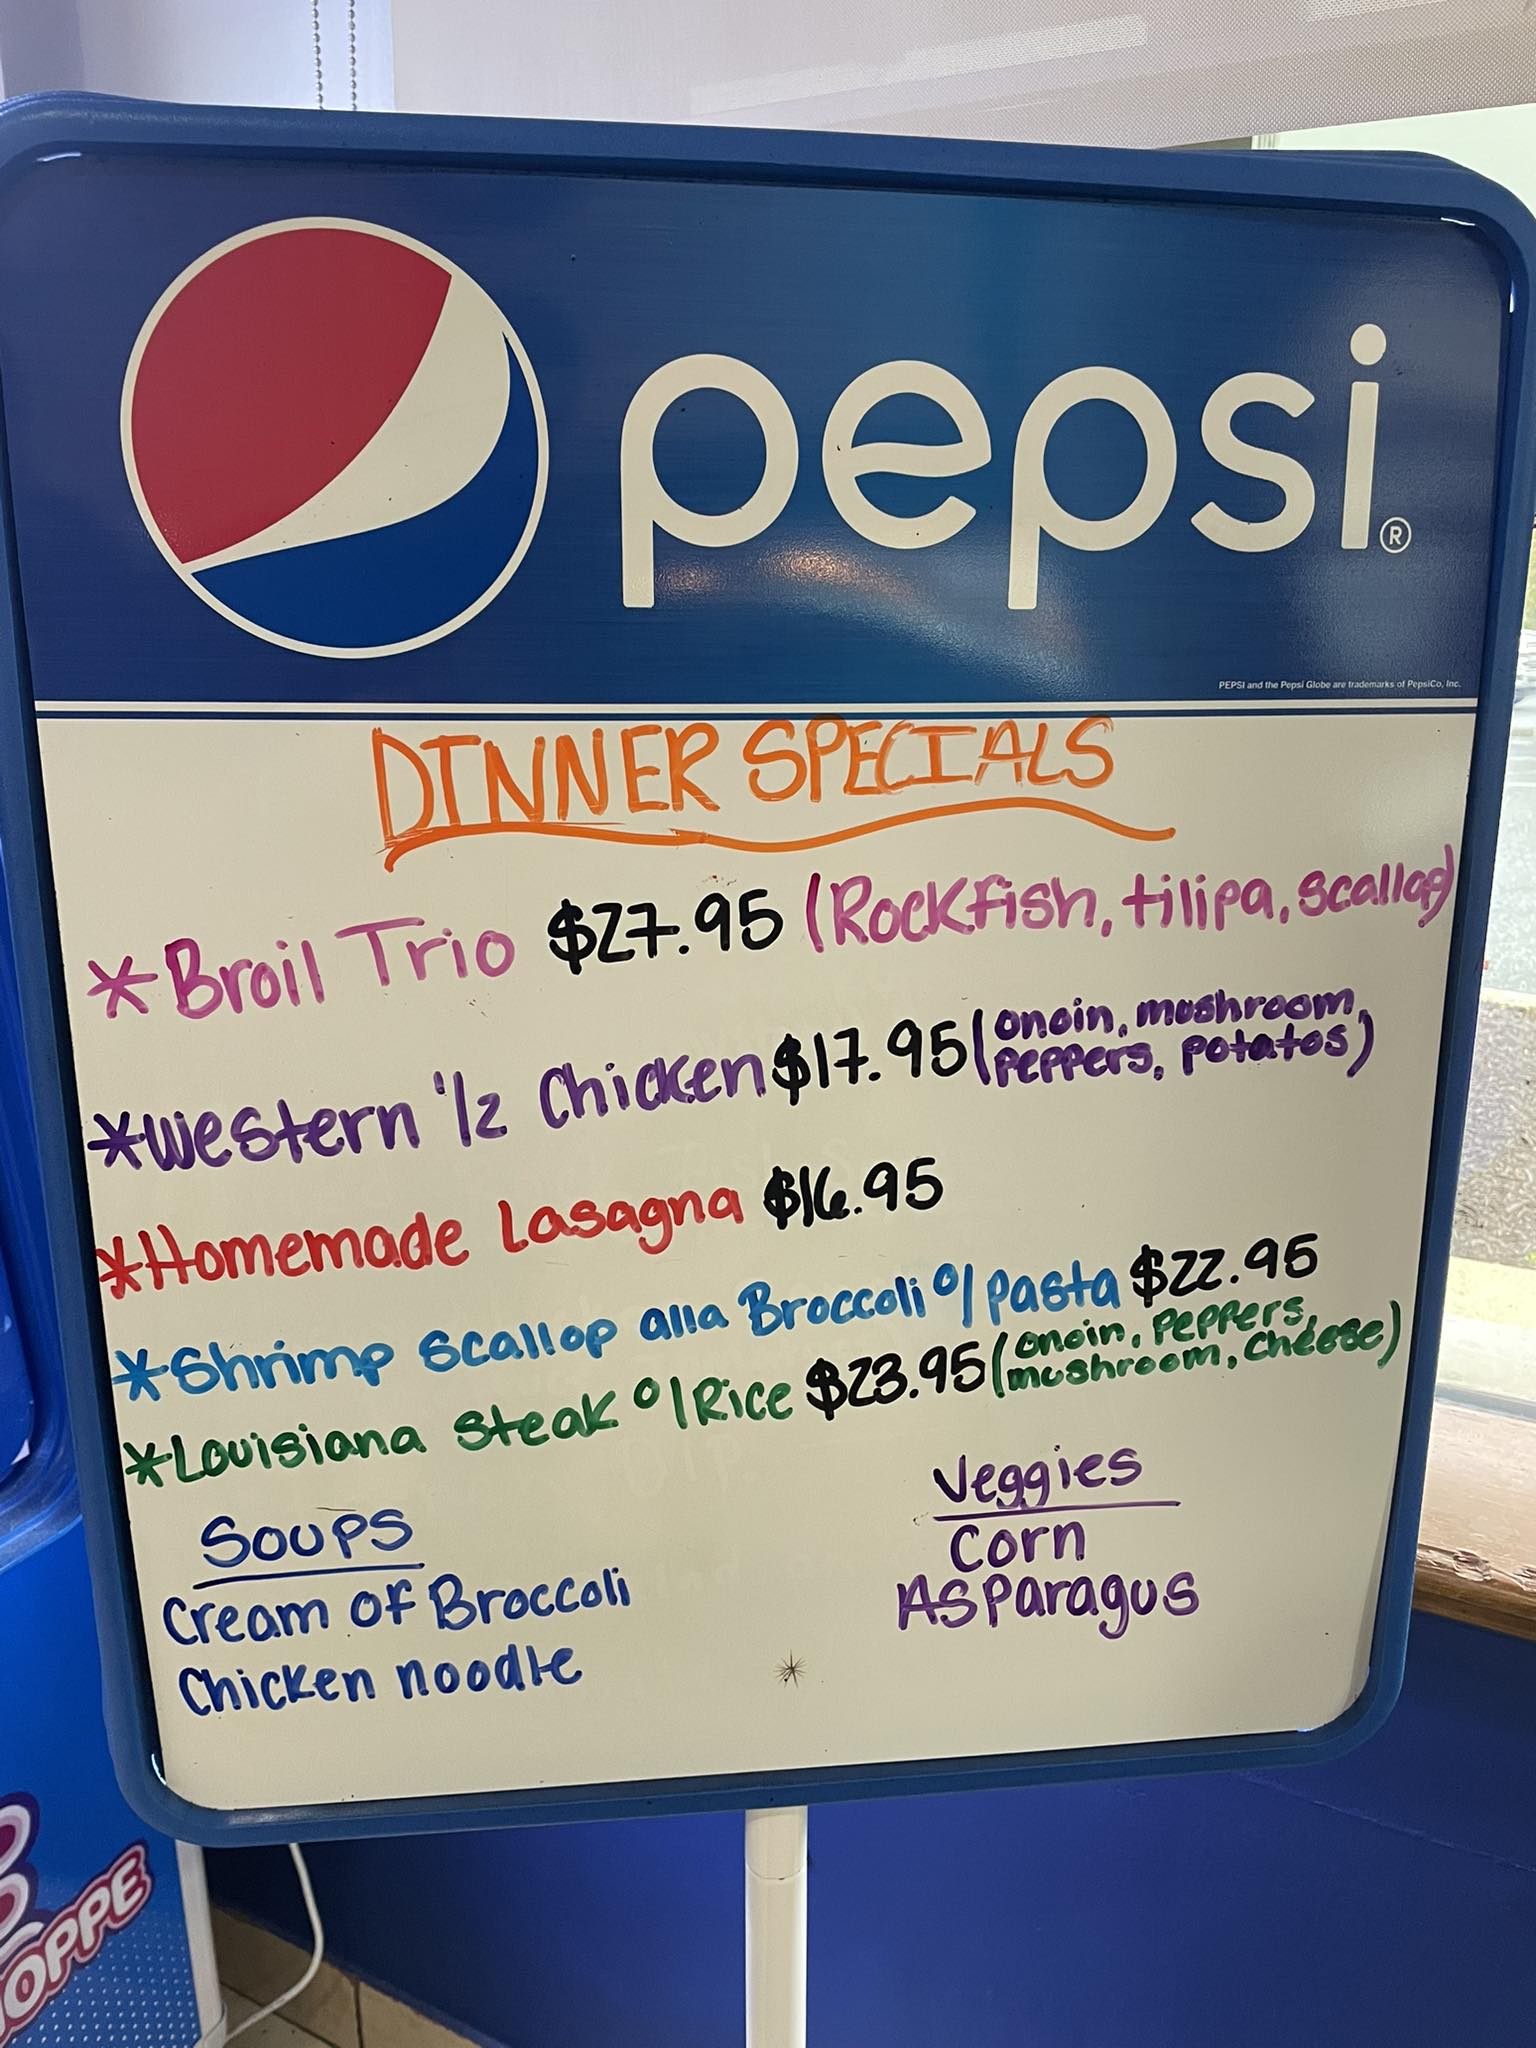 pepsi®
PEPSI and the Pepsi Globe are trademarks of PepsiCo, Inc.
DINNER SPECIALS
*Broil Trio $27.95 (Rockfish, tilipa, scallop)
*Western 1/2 Chicken $17.95 (onoin, mushroom,
peppers, potatos)
*Homemade Lasagna $16.95
*Shrimp scallop alla Broccoli o/ pasta $22.95
*Louisiana steak o/ Rice $23.95 (onoin, peppers,
mushroom, cheese)
Soups
Cream of Broccoli
Chicken noodle
Veggies
Corn
Asparagus
OPPE